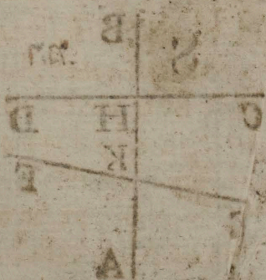 B
D H C
K
F
A